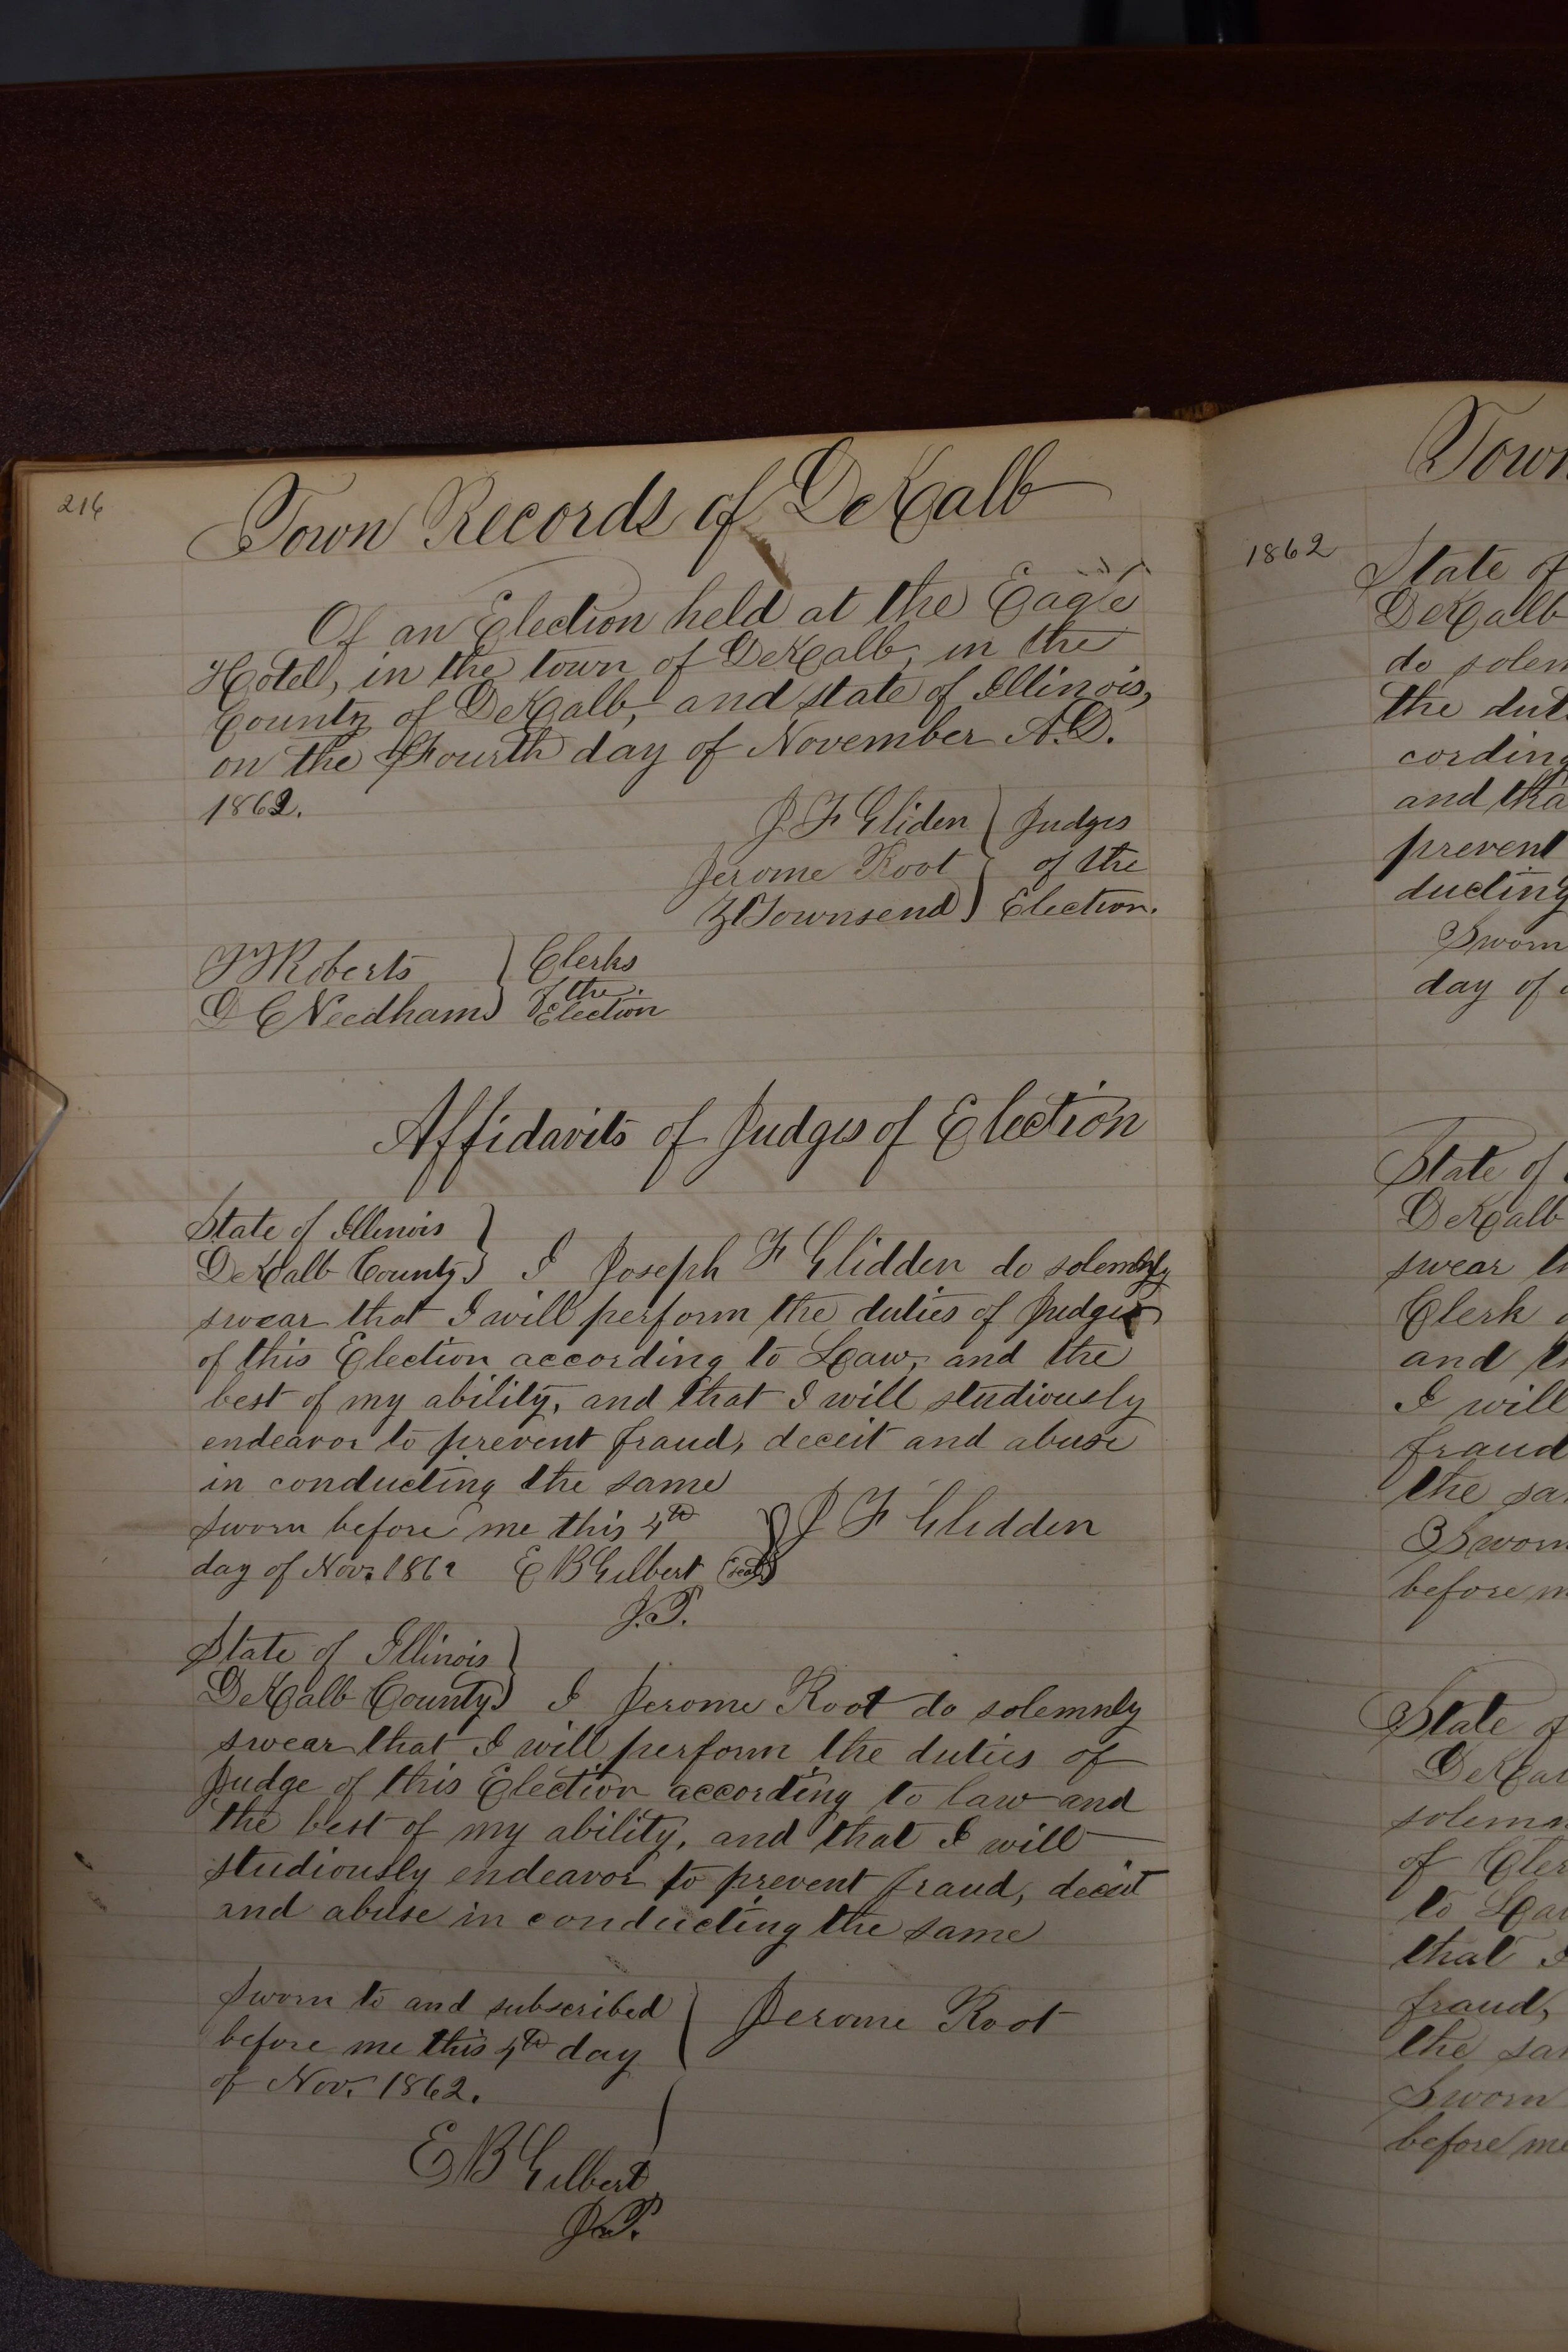 216
Town Records of DeKalb
Of an Election held at the Eagle
Hotel, in the town of DeKalb, in the
County of DeKalb, and state of Illinois,
on the Fourth day of November A.D.
1862.
J F Gliden } Judges
Jerome Root } of the
Z Townsend } Election.
Roberts } Clerks
of the
D C Needham } Election
Affidavits of Judges of Election
State of Illinois }
DeKalb County } I Joseph F Glidden do solemnly
swear that I will perform the duties of Judge
of this Election according to Law, and the
best of my ability, and that I will studiously
endeavor to prevent fraud, deceit and abuse
in conducting the same
Sworn before me this 4th } J F Glidden
day of Nov. 1862 E B Gilbert (seal)
J.P.
State of Illinois }
DeKalb County } I Jerome Root do solemnly
swear that I will perform the duties of
Judge of this Election according to law and
the best of my ability, and that I will
studiously endeavor to prevent fraud, deceit
and abuse in conducting the same
Sworn to and subscribed } Jerome Root
before me this 4th day
of Nov. 1862.
E B Gilbert
J.P.
Town
1862
State of
DeKalb
do solem
the dut
cording
and tha
prevent
ducting
Sworn
day of
State of
DeKalb
swear th
Clerk o
and th
I will
fraud
the sa
Sworn
before m
State of
DeKal
solemn
of Cler
to Law
that I
fraud,
the sam
Sworn
before me